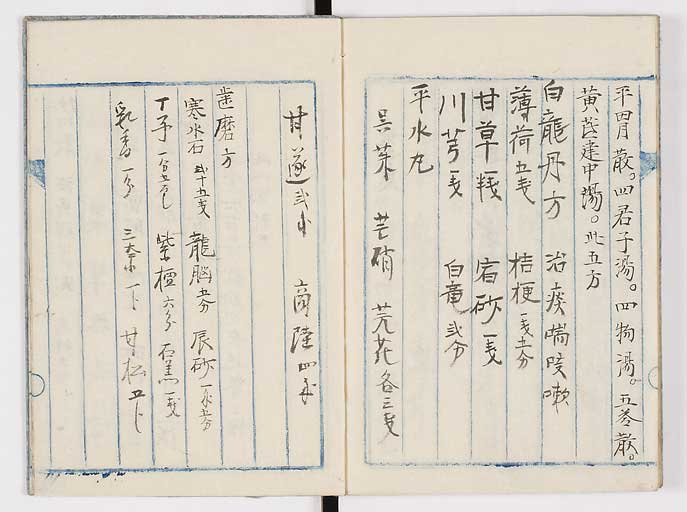 平胃散。四君子湯。四物湯。五苓散。
黄芪建中湯。此五方
白龍丹方 治痰喘咳嗽
薄荷五戔 桔梗一戔五分
甘草 宿砂一戔
川芎一戔 白竜弐分
平水丸
呉茱 芒硝 芫花各三戔
甘遂弐 商陸四
歯磨方
寒水石弐十五戔 龍脳五分 辰砂
丁子 紫檀六分 石羔一戔
乳香一分 三奈 甘松